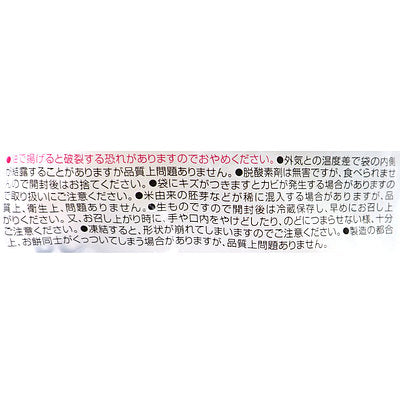 ●油で揚げると破裂する恐れがありますのでおやめください。●外気との温度差で袋の内側
結露することがありますが品質上問題ありません。●脱酸素剤は無害ですが、食べられませ
んので開封後はお捨てください。●袋にキズがつきますとカビが発生する場合がありますの
で取り扱いにご注意ください。●米由来の胚芽などが稀に混入する場合がありますが、品
質上、衛生上、問題ありません。●生ものですので開封後は冷蔵保存し、早めにお召し上
がりください。又、お召し上がり時に、手や口内をやけどしたり、のどにつまらせない様、十分
ご注意ください。●凍結すると、形状が崩れてしまいますのでご注意ください。●製造の都合
上、お餅同士がくっついてしまう場合がありますが、品質上問題ありません。